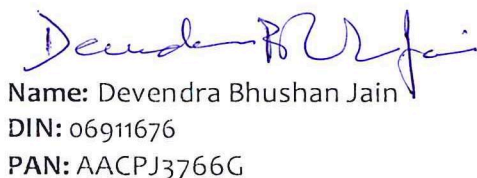 Devendra Bhushan Jain
Name: Devendra Bhushan Jain
DIN: 06911676
PAN: AACPJ3766G